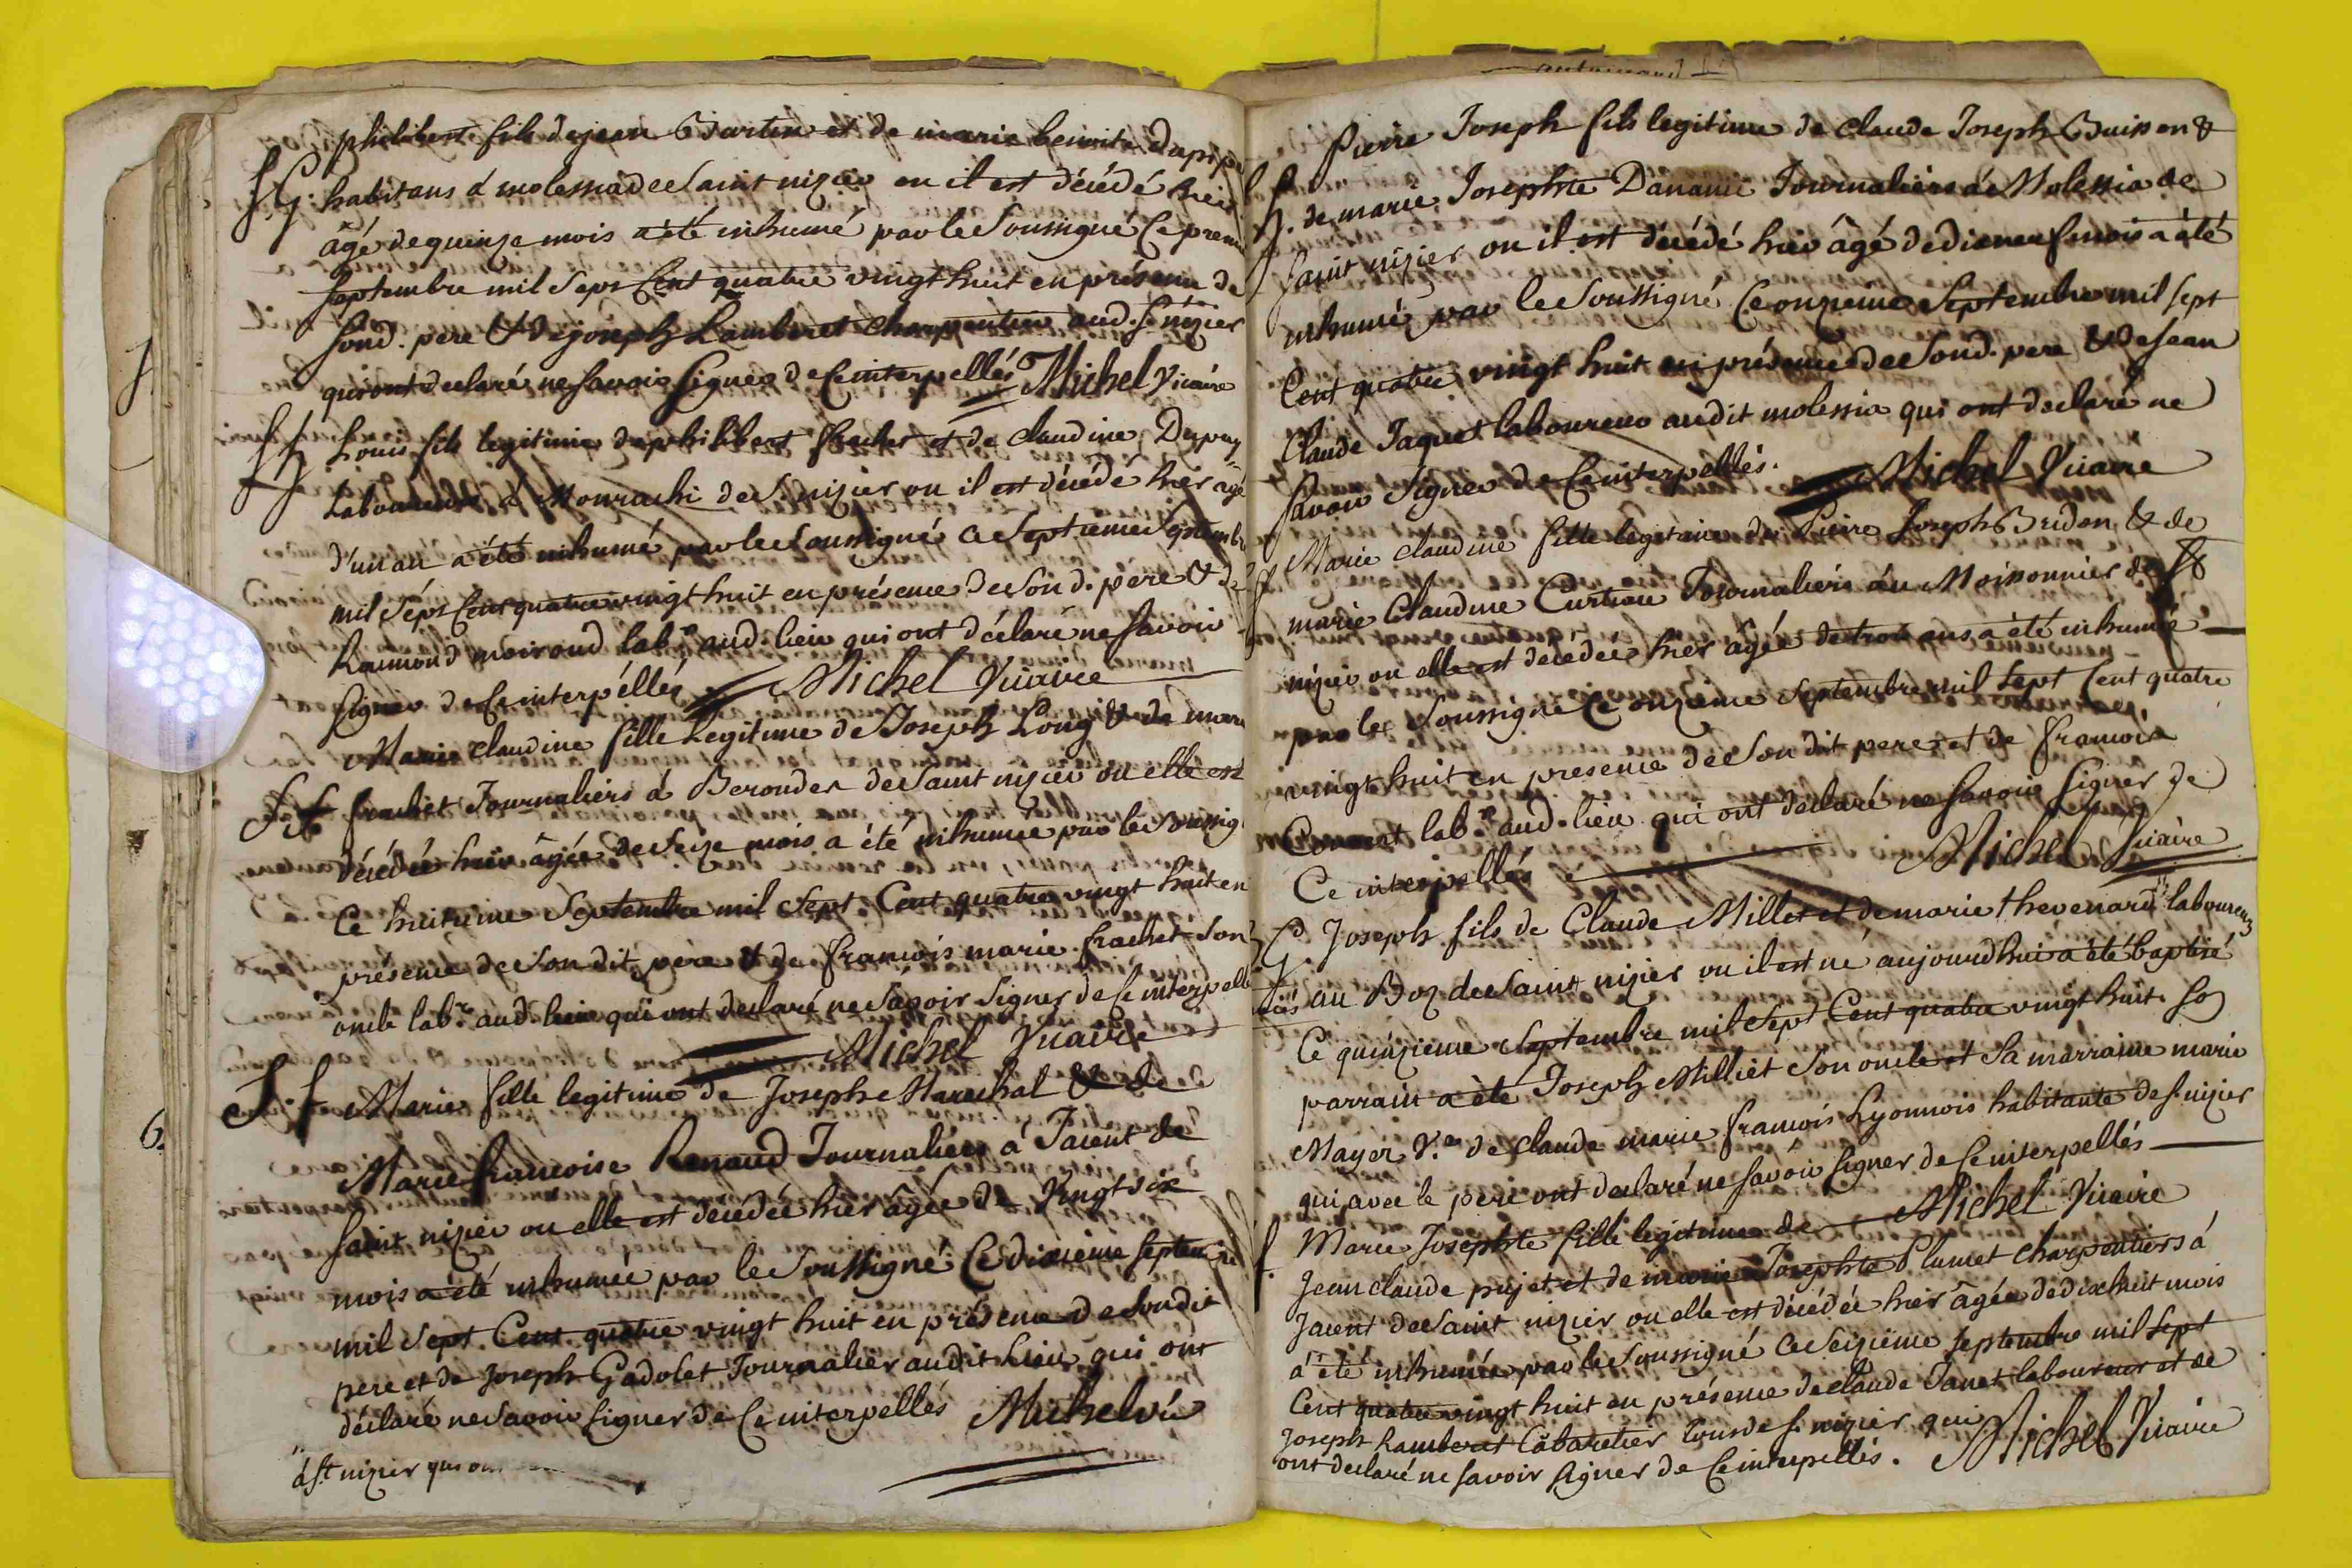 philibert fils de jean Bartin et de marie benoite
S. G. habitans á molessia de Saint nizier ou il est décédé hier
âgé de quinze mois a été inhumé par le Soussigné Ce premi
Septembre mil Sept Cent quatre vingt huit en présence de
Sond. pere & de joseph Lamberet charpentier aud. St. nizier
qui ont declaré ne Savoir Signer de Ce interpellés Michel Vicaire
Louis fils legitime de philibert frachet et de claudine Dupuy
Laboureurs à Monrachi de St. nizier ou il est décédé hier âgé
d'un an a été inhumé par le Soussigné ce Septieme Septembre
mil Sept Cent quatre vingt huit en présence de Son d. père & de
Raimond moiroud labr. aud. lieu qui ont déclaré ne Savoir
Signer de Ce interpéllés Michel Vicaire
Marie claudine fille Legitime de Joseph Long & de marie
frachet Journaliers á Berouder de Saint nizier ou elle est
décédée hier âgée de Seize mois a été inhumée par le Soussig
Ce huitieme Septembre mil Sept Cent quatre vingt huit en
présence de Son dit pere & de francois marie frachet Son
oncle labr. aud. lieu qui ont declaré ne Savoir Signer de Ce interpellés
Michel Vicaire
S. f Marie fille legitime de Josephe Marechal & de
6.
Marie francoise Renaud Journaliers à Taient de
Saint nizier ou elle est décédée hier âgée de Vingt six
mois a été inhumée par le Soussigné Ce dixieme Septembre
mil Sept Cent quatre vingt huit en présence de Son dit
pere et de Joseph Gadolet Journalier audit Lieu qui ont
déclaré ne Savoir Signer de Ce interpellés Michel vic
á St. nizier qui on
Pierre Joseph fils legitime de claude Joseph Buisson &
de marie Josephte Dananié Journaliers á Molessia de
Saint nizier ou il est décédé hier âgé de dixneuf mois a été
inhumé par le Soussigné Ce onzieme Septembre mil Sept
Cent quatre vingt huit en présence de Sond. pere & de Jean
Claude Jaquet laboureur audit molessia qui ont declaré ne
Savoir Signer de Ce interpellés. Michel Vicaire
Marie claudine fille legitime de Pierre Joseph Bridon & de
marie Claudine Curtiau Journaliers au Moissonnier de St
nizier ou elle est décédée hier âgée de trois ans a été inhumée
par le Soussigné Ce onzieme Septembre mil Sept Cent quatre
vingt huit en presence de Son dit pere et de francois
Convert labr. aud. lieu qui ont declaré ne Savoir Signer de
Ce interpellés Michel Vicaire
G. Joseph fils de Claude Millet et de marie thevenard laboureurs
au Boz de Saint nizier ou il est né aujourdhui a été baptisé
Ce quinzieme Septembre mil Sept Cent quatre vingt huit. Son
parrain a été Joseph Milliet Son oncle et Sa marraine marie
Mayor Ve. de claude marie francois Lyonnois habitante de St. nizier
qui avec le pere ont declaré ne Savoir Signer de Ce interpellés
Michel Vicaire
Marie Josephte fille legitime de
Jean claude pujet et de marie Josephte Plumet charpentiers á
Jaient de Saint nizier ou elle est décédée hier âgée de dix huit mois
á été inhumée par le Soussigné Ce Seizieme Septembre mil Sept
Cent quatre vingt huit en présence de claude Janet laboureur et de
Joseph Lamberet Cabaretier tous de St. nizier qui Michel Vicaire
ont declaré ne Savoir Signer de Ce interpellés.